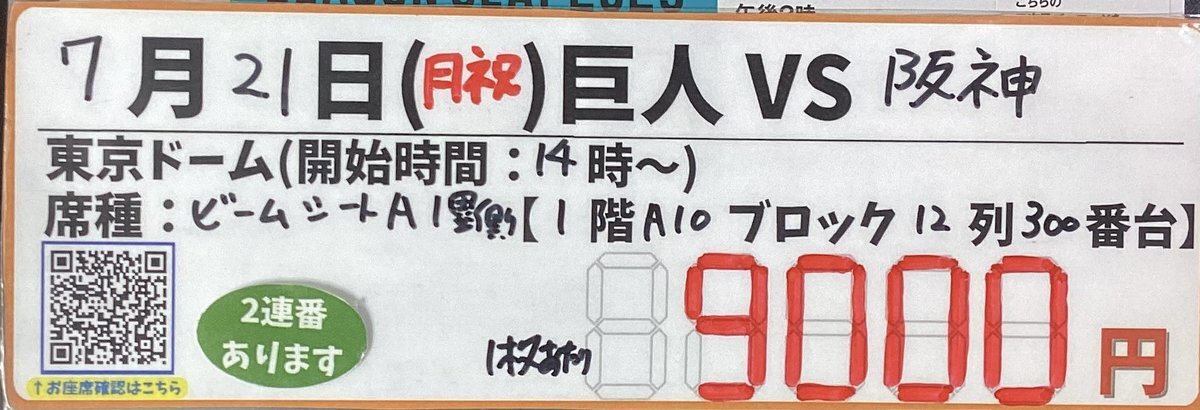 午後2時
こちらの
7月21日(月祝)巨人 VS 阪神
東京ドーム(開始時間:14時～)
席種:ビームシートA 1塁側【1階A10ブロック12列300番台】
2連番
あります
1枚あたり
9000円
↑お座席確認はこちら